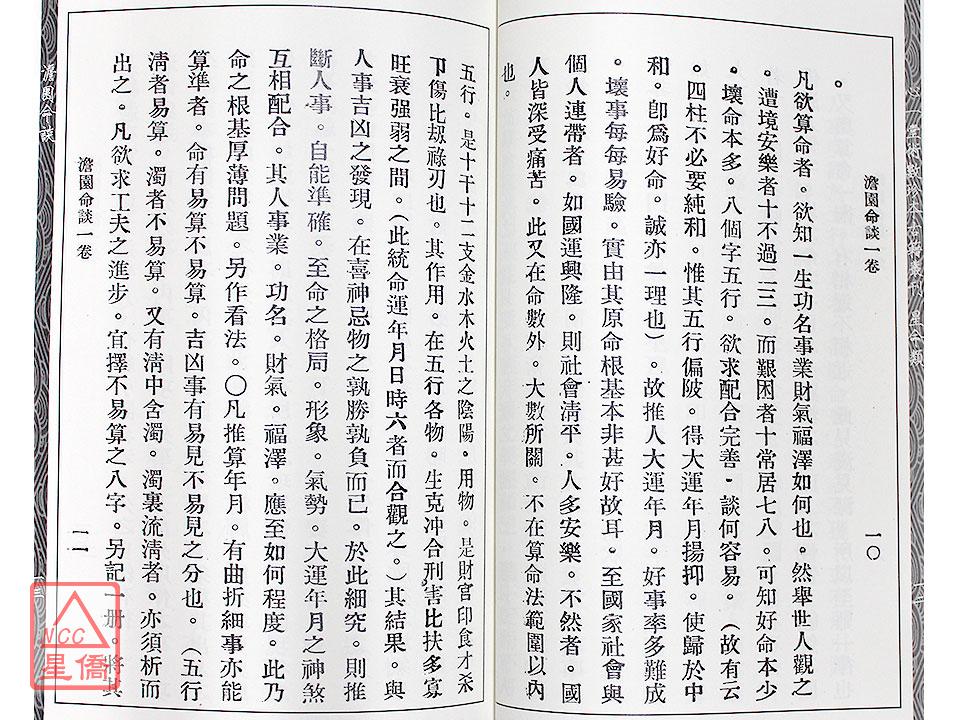 澹園命談一卷
一〇
。
凡欲算命者。欲知一生功名事業財氣福澤如何也。然舉世人觀之
。遭境安樂者十不過二三。而艱困者十常居七八。可知好命本少
。壞命本多。八個字五行。欲求配合完善。談何容易。（故有云
。四柱不必要純和。惟其五行偏陂。得大運年月揚抑。使歸於中
和。卽爲好命。誠亦一理也）。故推人大運年月。好事率多難成
。壞事每每易驗。實由其原命根基本非甚好故耳。至國家社會與
個人連帶者。如國運興隆。則社會淸平。人多安樂。不然者。國
人皆深受痛苦。此又在命數外。大數所關。不在算命法範圍以內
也。
五行。是十干十二支金水木火土之陰陽。用物。是財官印食才杀
卩傷比刼祿刃也。其作用。在五行各物。生克冲合刑害比扶多寡
旺衰强弱之間。（此統命運年月日時六者而合觀之。）其結果。與
人事吉凶之發現。在喜神忌物之孰勝孰負而已。於此細究。則推
斷人事。自能準確。至命之格局。形象。氣勢。大運年月之神煞
互相配合。其人事業。功名。財氣。福澤。應至如何程度。此乃
命之根基厚薄問題。另作看法。〇凡推算年月。有曲折細事亦能
算準者。命有易算不易算。吉凶事有易見不易見之分也。（五行
淸者易算。濁者不易算。又有淸中含濁。濁裏流淸者。亦須析而
出之。凡欲求工夫之進步。宜擇不易算之八字。另記一册。將其
澹園命談一卷
一一
澹園命談
NCC
星僑